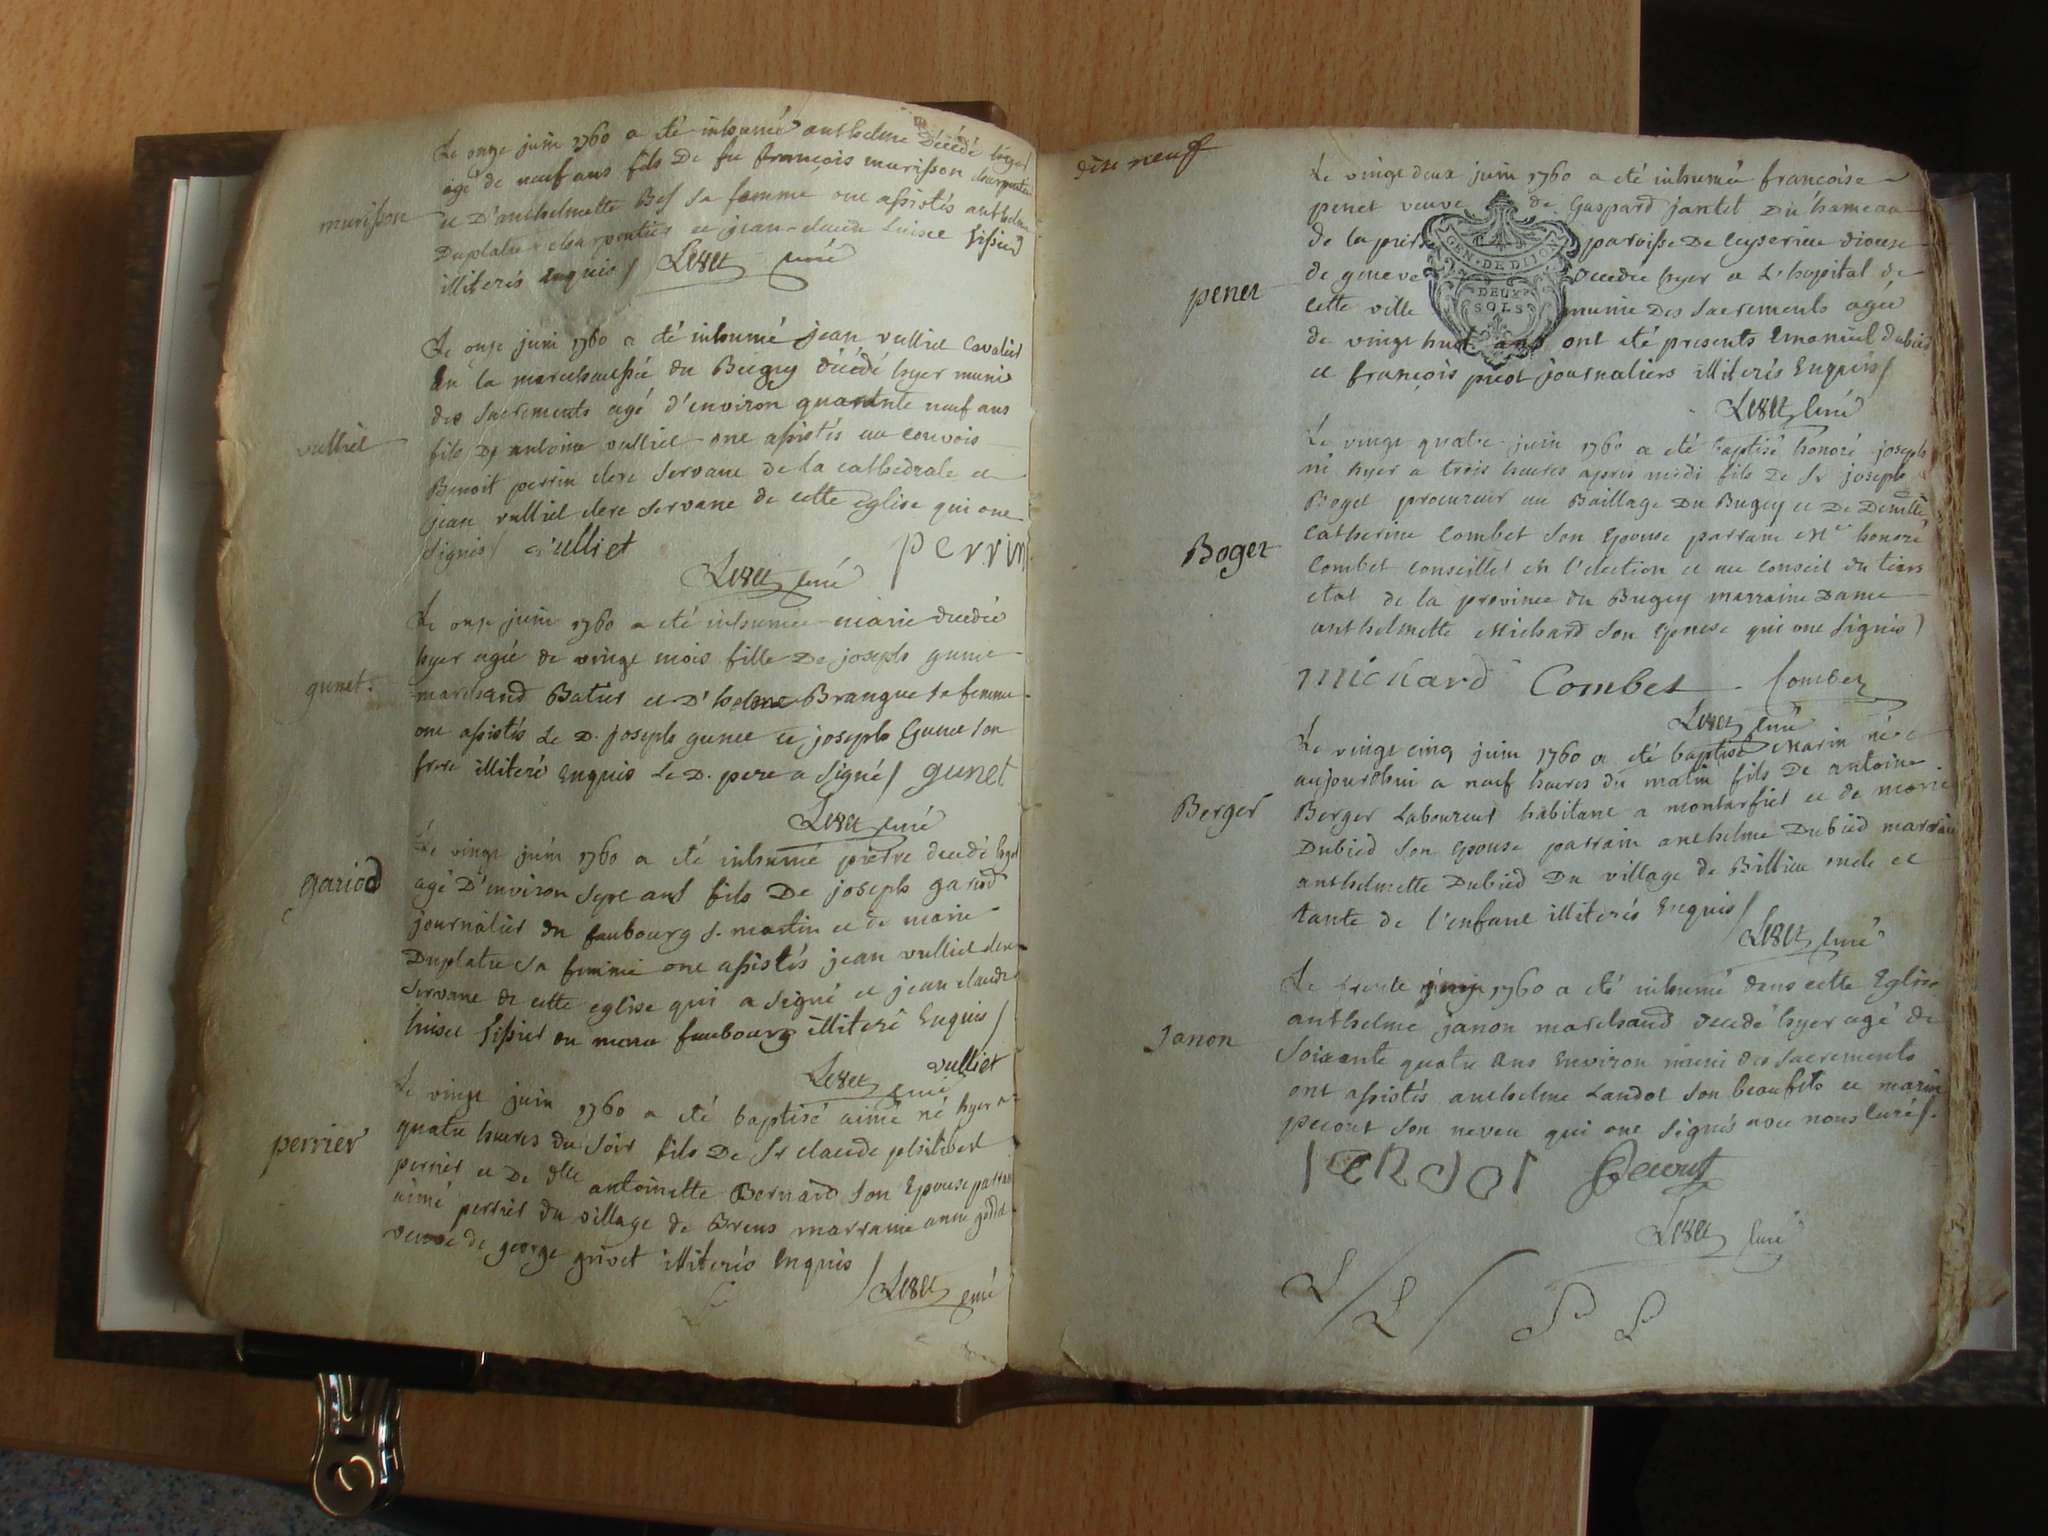 Le onze juin 1760 a été inhumé anthelme décédé hyer
agé de neuf ans fils de feu françois murisson charpentier
murisson
et D'anthelmette Bef sa femme ont assistés anthelme
Duplatre charpentier et jean-claude luiset tissier
illiterés enquis / Lezet curé
Le onze juin 1760 a été inhumé jean vulliet Cavalier
En la marechaussée du Bugey décédé hyer muni
des Sacrements agé d'environ quarante neuf ans
vulliet
fils de antoine vulliet ont assistés au convois
Benoit perrin clerc servant de la cathedrale et
jean vulliet clerc servant de cette eglise qui ont
signés / vulliet perrin
Lezet curé
Le onze juin 1760 a été inhumée marie decedée
hyer agée de vingt mois fille De joseph gunet
gunet
marchand Batier et D'helene Brangue sa femme
ont assistés Le D. joseph gunet et joseph Gunet son
frere illiteré Enquis Le D. pere a signé / gunet
Lezet curé
Le vingt juin 1760 a été inhumé pierre decedé hyer
agé D'environ sept ans fils De joseph gariod
gariod
journalier du faubourg S. martin et de marie
Duplatre sa femme ont assistés jean vulliet clerc
servant de cette eglise qui a signé et jean claude
luiset tissier au meme faubourg illiteré Enquis /
Lezet curé vulliet
Le vingt juin 1760 a été baptisé aimé né hyer a
quatre heures du soir fils De Sr claude philibert
perrier
perrier et De dlle antoinette Bernard son Epouse parrain
aimé perrier du village de Brens marraine anne
veuve de george grivet illiterés enquis
/ Lezet curé
dixe neuf
Le vingt deux juin 1760 a été inhumée francoise
penet veuve de Gaspard jantet Du hameau
de la pierre paroisse De Ceyserieu diocese
GEN. DE DIJON
DEUX
SOLS
penet
de geneve decedée hyer a L'hopital de
cette ville munie Des Sacrements agée
de vingt huit ans ont été presents Emanuel dubied
et françois picot journaliers illiterés Enquis /
Lezet curé
Le vingt quatre juin 1760 a été baptisé honoré joseph
né hyer a trois heures apres midi fils De Sr joseph
Boget procureur au Baillage Du Bugey et De Demlle
Boget
Catherine Combet son Epouse parrain Mre honoré
Combet conseiller en l'election et au conseil du tiers
etat de la province du Bugey marraine Dame
anthelmette Michard son Epouse qui ont signés /
michard Combet Combet
Lezet curé
Le vingt cinq juin 1760 a été baptisé Marin né
aujourd'hui a neuf heures du matin fils De antoine
Berger
Berger Laboureur habitant a montarfier et de marie
Dubied son epouse parrain anthelme Dubied marraine
anthelmette Dubied Du village de Billieu oncle et
tante de l'enfant illiterés Enquis /
Lezet curé
Le trente juin 1760 a été inhumé dans cette Eglise
anthelme janon marchand decedé hyer agé de
Janon
Soixante quatre ans Environ muni des sacrements
ont assistés anthelme Landot son beaufils et marin
pecout son neveu qui ont signés avec nous curé /.
LANDOT Pecout
Lezet curé